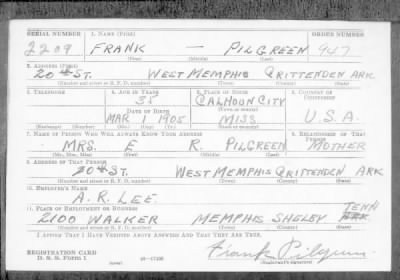 SERIAL NUMBER 1. NAME (Print) ORDER NUMBER
2209 FRANK — PILGREEN 947
(First) (Middle) (Last)
2. ADDRESS (Print)
20th ST. WEST MEMPHIS CRITTENDEN ARK
(Number and street or R. F. D. number) (Town) (County) (State)
3. TELEPHONE 4. AGE IN YEARS 5. PLACE OF BIRTH 6. COUNTRY OF CITIZENSHIP
35 CALHOUN CITY
DATE OF BIRTH (Town or county)
MAR 1 1905 MISS U.S.A.
(Exchange) (Number) (Mo.) (Day) (Yr.) (State or country)
7. NAME OF PERSON WHO WILL ALWAYS KNOW YOUR ADDRESS 8. RELATIONSHIP OF THAT PERSON
MRS. E R. PILGREEN MOTHER
(Mr., Mrs., Miss) (First) (Middle) (Last)
9. ADDRESS OF THAT PERSON
20th ST. WEST MEMPHIS CRITTENDEN ARK
(Number and street or R. F. D. number) (Town) (County) (State)
10. EMPLOYER'S NAME
A. R. LEE.
11. PLACE OF EMPLOYMENT OR BUSINESS TENN
2100 WALKER MEMPHIS SHELBY ARK.
(Number and street or R. F. D. number) (Town) (County) (State)
I AFFIRM THAT I HAVE VERIFIED ABOVE ANSWERS AND THAT THEY ARE TRUE.
REGISTRATION CARD
D. S. S. Form 1 Frank Pilgreen
(Registrant's signature)